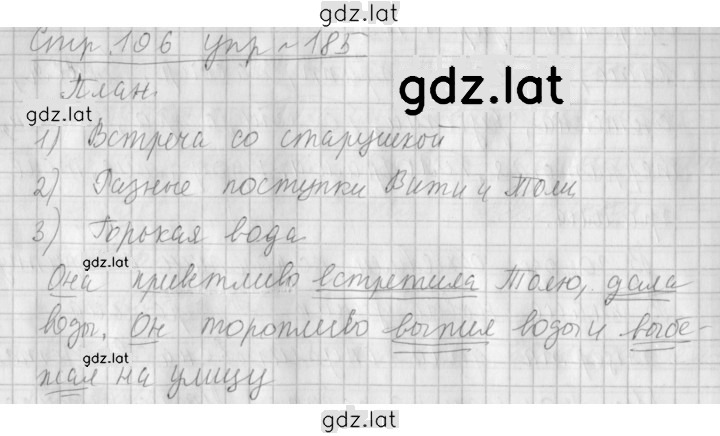 gdz.lat
Стр. 106 упр ~ 185
gdz.lat
План.
gdz.lat
1) Встреча со старушкой
2) Разные поступки Вити и Толи
3) Горькая вода
gdz.lat
Она приветливо встретила Толю, дала
воды. Он торопливо выпил воды и выбе-
gdz.lat
жал на улицу
gdz.lat